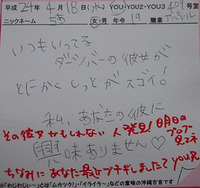 平成24年4月18日(水) YOU・YOU2・YOU3 401号室
ニックネーム 55 女・男 年令19 職業
いつもいってる
ダーツバーの彼女が
とにかくしっとがスゴイ!
私、あなたの彼に
興味ありません♡
その彼女かもしれない人発見!日の
ブログ見てネ
ちなみにあなた最ピブチギしましたてYOU兄
※「わじわじぃ~」とは「ムカツク!」「イライラ~」などの意味の沖縄方言です